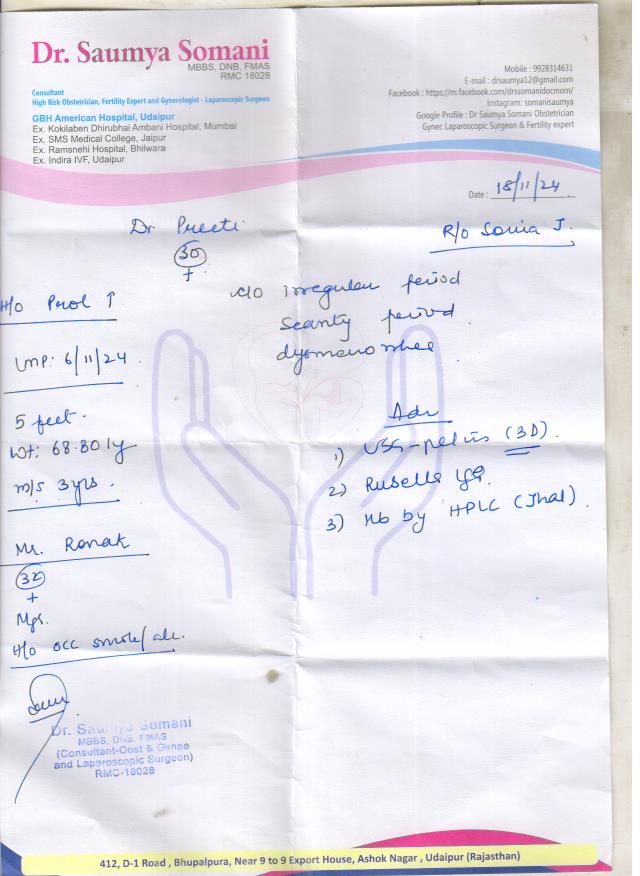 Dr. Saumya Somani
MBBS, DNB, FMAS
RMC 18028
Consultant
High Risk Obstetrician, Fertility Expert and Gynecologist - Laparoscopic Surgeon
GBH American Hospital, Udaipur
Ex. Kokilaben Dhirubhai Ambani Hospital, Mumbai
Ex. SMS Medical College, Jaipur
Ex. Ramsnehi Hospital, Bhilwara
Ex. Indira IVF, Udaipur
Mobile : 9928314631
E-mail : drsaumya12@gmail.com
Facebook : https://m.facebook.com/drssomanidocmom/
Instagram: somanisaumya
Google Profile : Dr Saumya Somani Obstetrician
Gynec Laparoscopic Surgeon & Fertility expert
Date : 18/11/24
Dr. Preeti
30
+
R/o Sonia J.
H/o Prol ↑
LMP: 6/11/24
5 feet.
wt: 68.80
m/s 3 yrs.
Mr. Ronak
32
+
Mgr.
H/o occ smoke/alc.
c/o irregular period
Scanty period
dysmenorrhea
Adv
1) USG-pelvis (3D).
2) Rubella IgG.
3) Hb by HPLC (Thal).
Dr. Saumya Somani
MBBS, DNB, FMAS
(Consultant-Obst & Gynae
and Laparoscopic Surgeon)
RMC-18028
412, D-1 Road , Bhupalpura, Near 9 to 9 Export House, Ashok Nagar , Udaipur (Rajasthan)